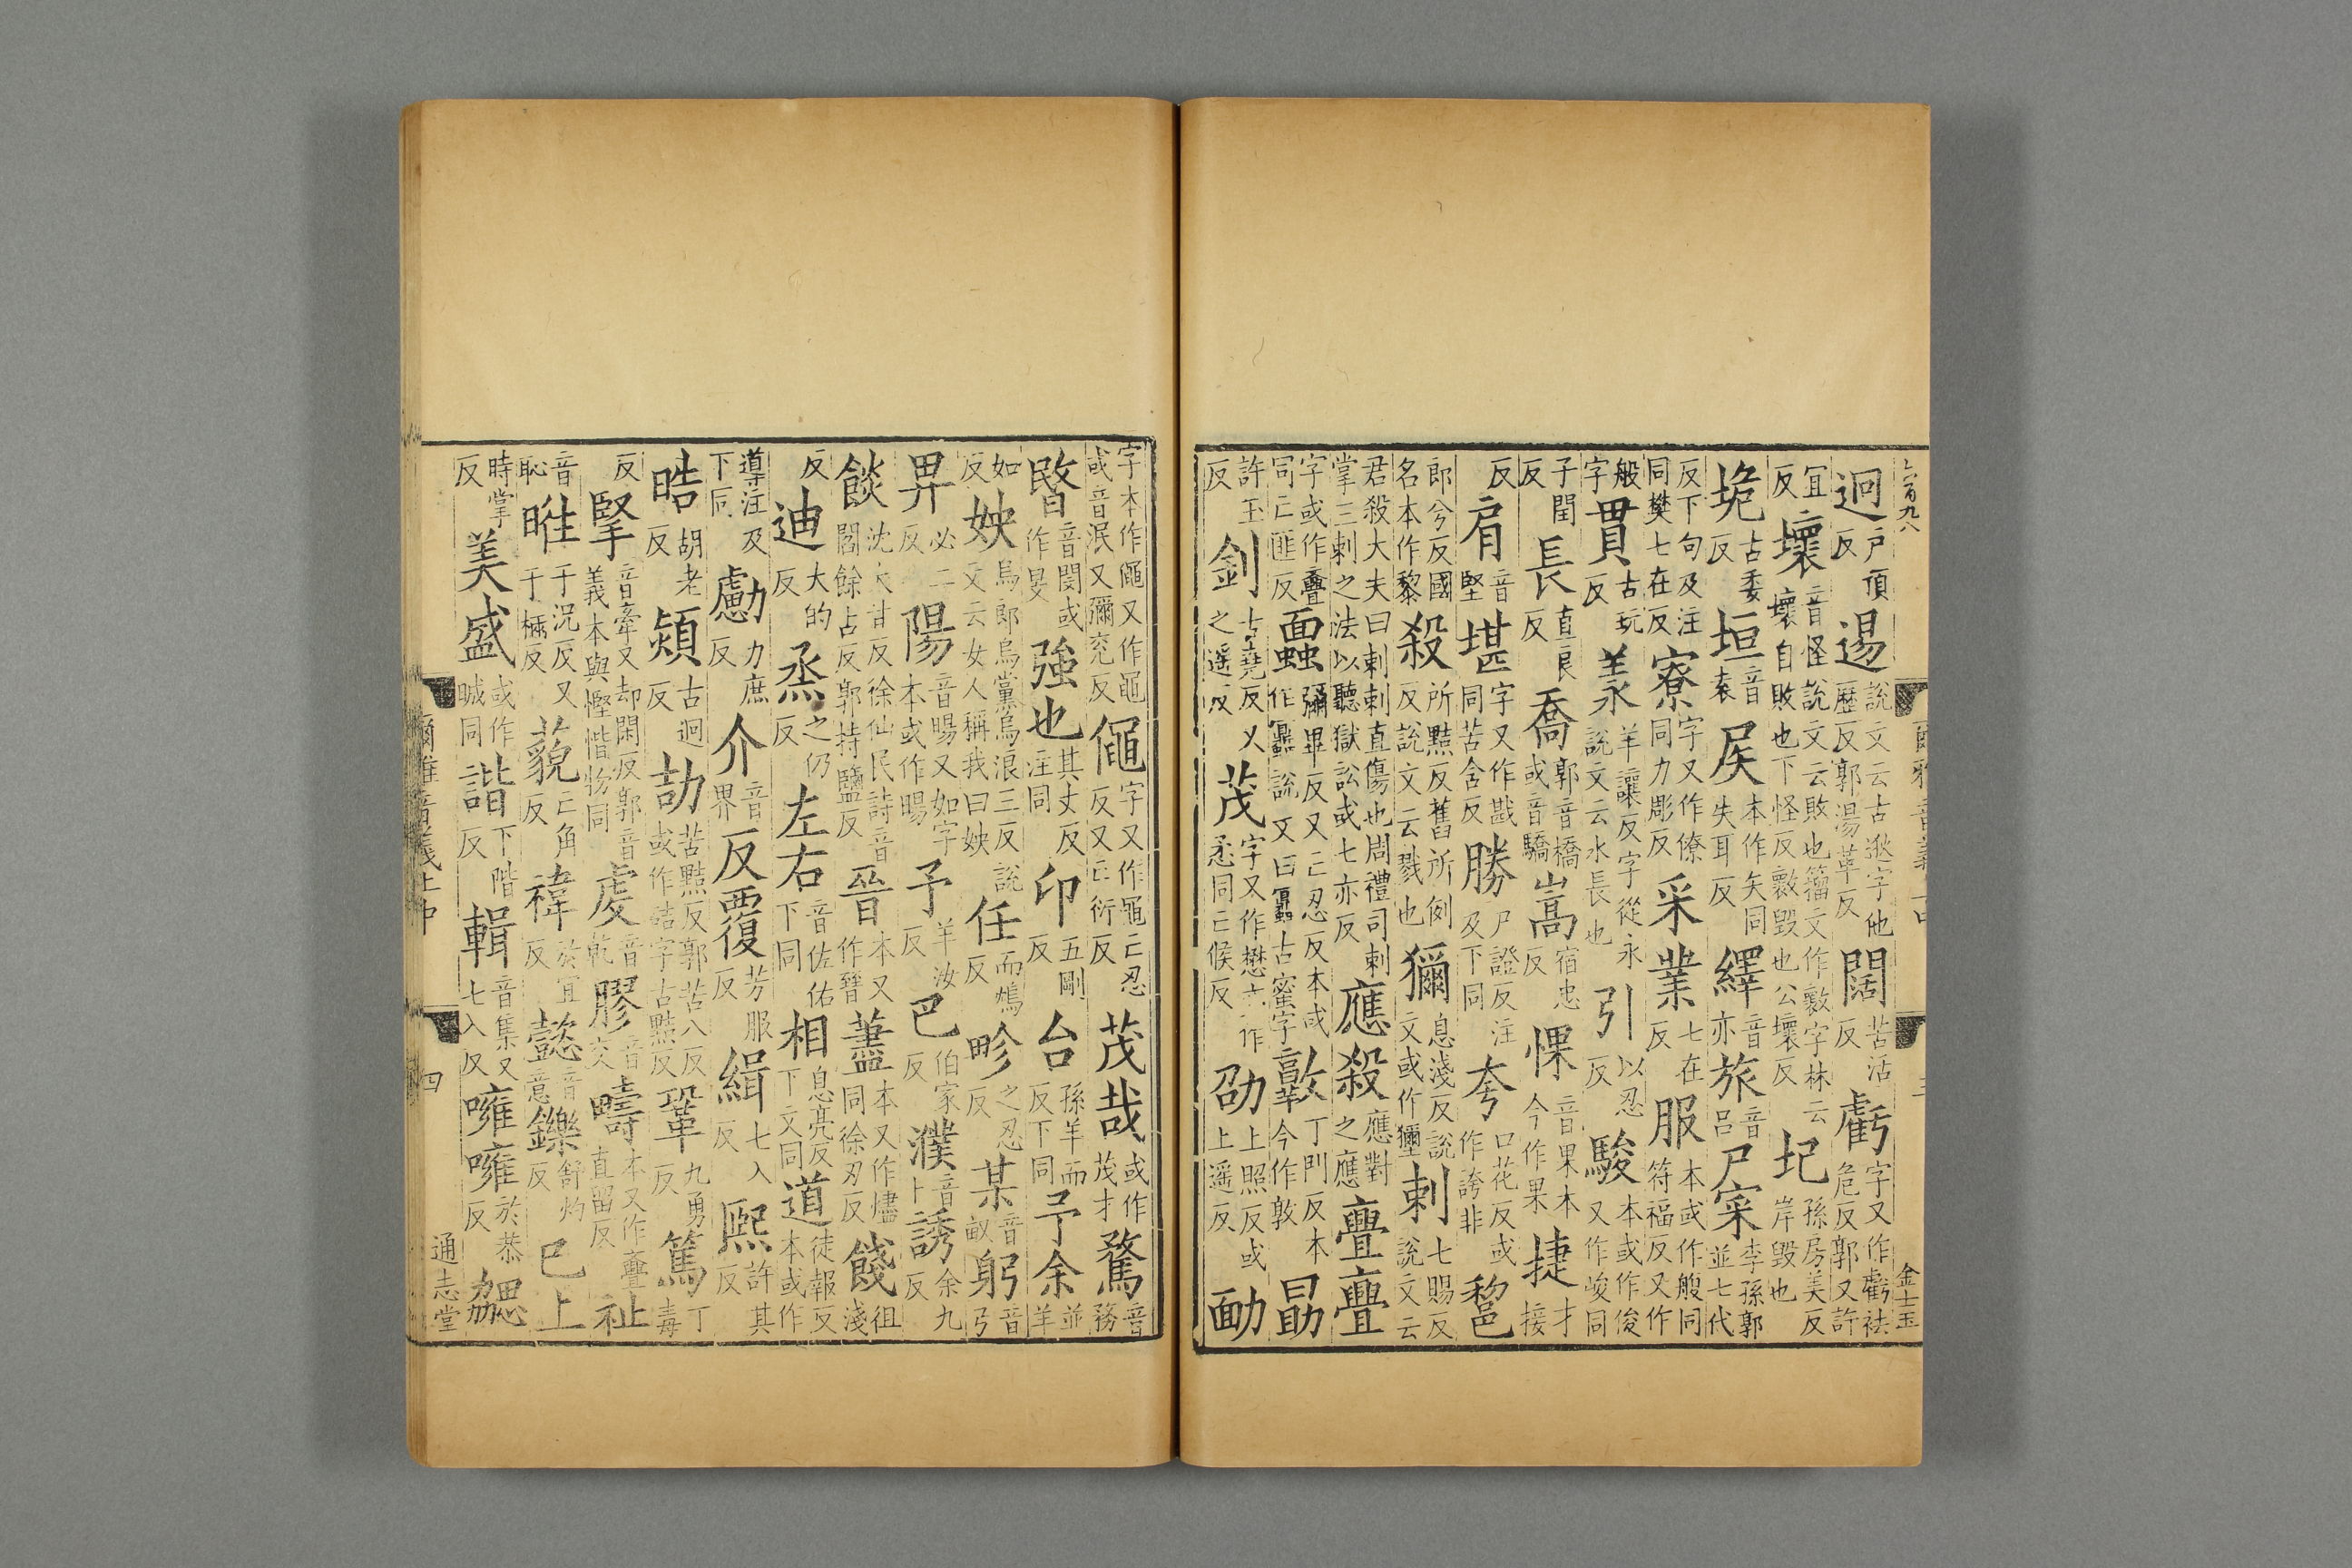 迥戶頂反逷說文云古逖字他歷反郭湯革反闊苦活反虧字又作虧袪危反郭又許
宜反壞音怪說文云敗也籀文作𣀩字林云壞自敗也下怪反𣀩毀也公壞反圮孫房美反岸毀也
垝古委反垣音袁𡱁本作矢同失耳反繹音亦旅音呂尸寀李孫郭並七代
反下句及注同樊七在反寮字又作僚同力彫反采業七在反服本或作𦨕同符福反又作
般字貫古玩反羕羊讓反字從永說文云水長也引以忍反駿本或作俊又作峻同
子閏反長直良反喬郭音橋或音驕嵩宿忠反惈音果本今作果捷才接
反肩音堅堪字又作戡同苦含反勝尸證反注及下同夸口花反或作誇非黎
郎兮反國名本作黎殺所黠反舊所例反說文云戮也獮息淺反說文或作𤣗刺七賜反說文云
君殺大夫曰刺刺直傷也周禮司刺掌三刺之法以聽獄訟或七亦反應殺應對之應亹亹
字或作斖同亡匪反蠠彌畢反又亡忍反本或作䘇說文曰䘇古蜜字𢾭丁門反本今作敦勖
許玉反釗古堯反又之遙反茂字又作懋亦作㤀同亡候反劭上照反或上遙反勔
字本作僶又作黽或音泯又彌兖反僶字又作黽亡忍反又亡衍反茂哉或作茂才騖音務
暋音閔或作旻強也其丈反注同卬五剛反台孫羊而反下同予余並羊
如反姎烏郎烏黨烏浪三反說文云女人稱我曰姎任而鴆反畛之忍反某音畝躬音弓
畀必二反陽音暘又如字本或作暘予羊汝反巴伯家反濮音卜誘余九反
餤沈大甘反徐仙民詩音閻餘占反郭持鹽反晉本又作晉藎本又作燼同徐刃反餞徂淺
反迪大的反烝之仍反左右音佐佑下同相息亮反下文同道徒報反本或作
導注及下同勴力庶反介音界反覆芳服反緝七入反熙許其反
晧胡老反熲古迥反劼苦黠反郭苦八反或作硈字古黠反鞏九勇反篤丁毒
反掔音牽又却閑反郭音義本與慳惜物同虔音乾膠音交疇本又作𠷎直留反祉
音恥暀于況反又于柄反藐亡角反褘於宜反懿音意鑠舒灼反已上
時掌反美盛或作晠同諧下階反輯音集又七入反噰噰於恭反勰
六百九八
金士玉
爾雅音義上中
四
通志堂